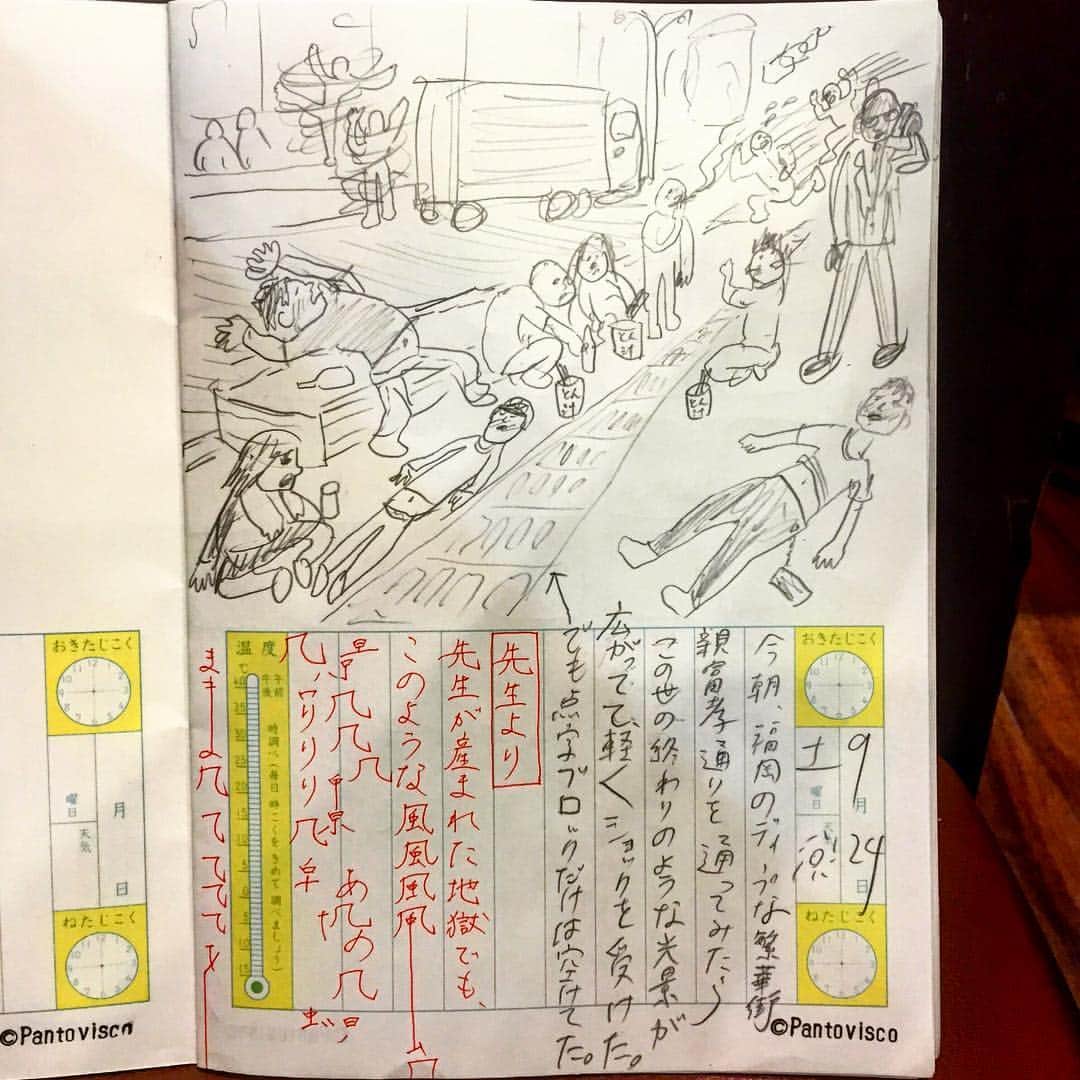 とん汁
とん汁
とん汁
おきたじこく
9月
24日
曜日
土
天気
ねたじこく
今朝、福岡のディープな繁華街
親富孝通りを通ってみたら
この世の終わりのような光景が
広がってて、軽くショックを受けた。
でも点字ブロックだけは空けてた。
先生より
先生が産まれた地獄でも、
このような風風風風
温度
℃
午前
午後
時調べ(毎日時こくをきめて調べましょう)
おきたじこく
月
日
曜日
天気
ねたじこく
©Pantovisco
©Pantovisco